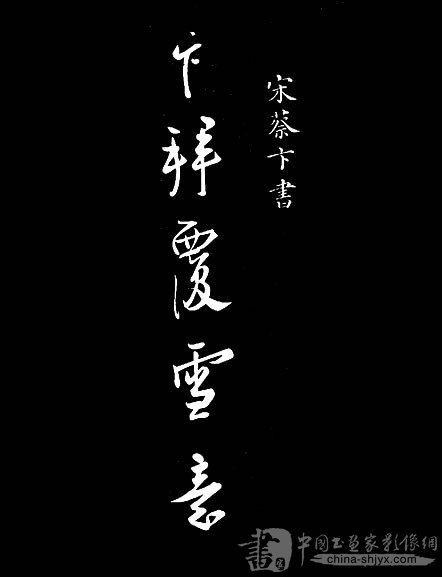 宋蔡卞書
卞拜覆雪意
書
中國书画家影像網
china-shjyx.com